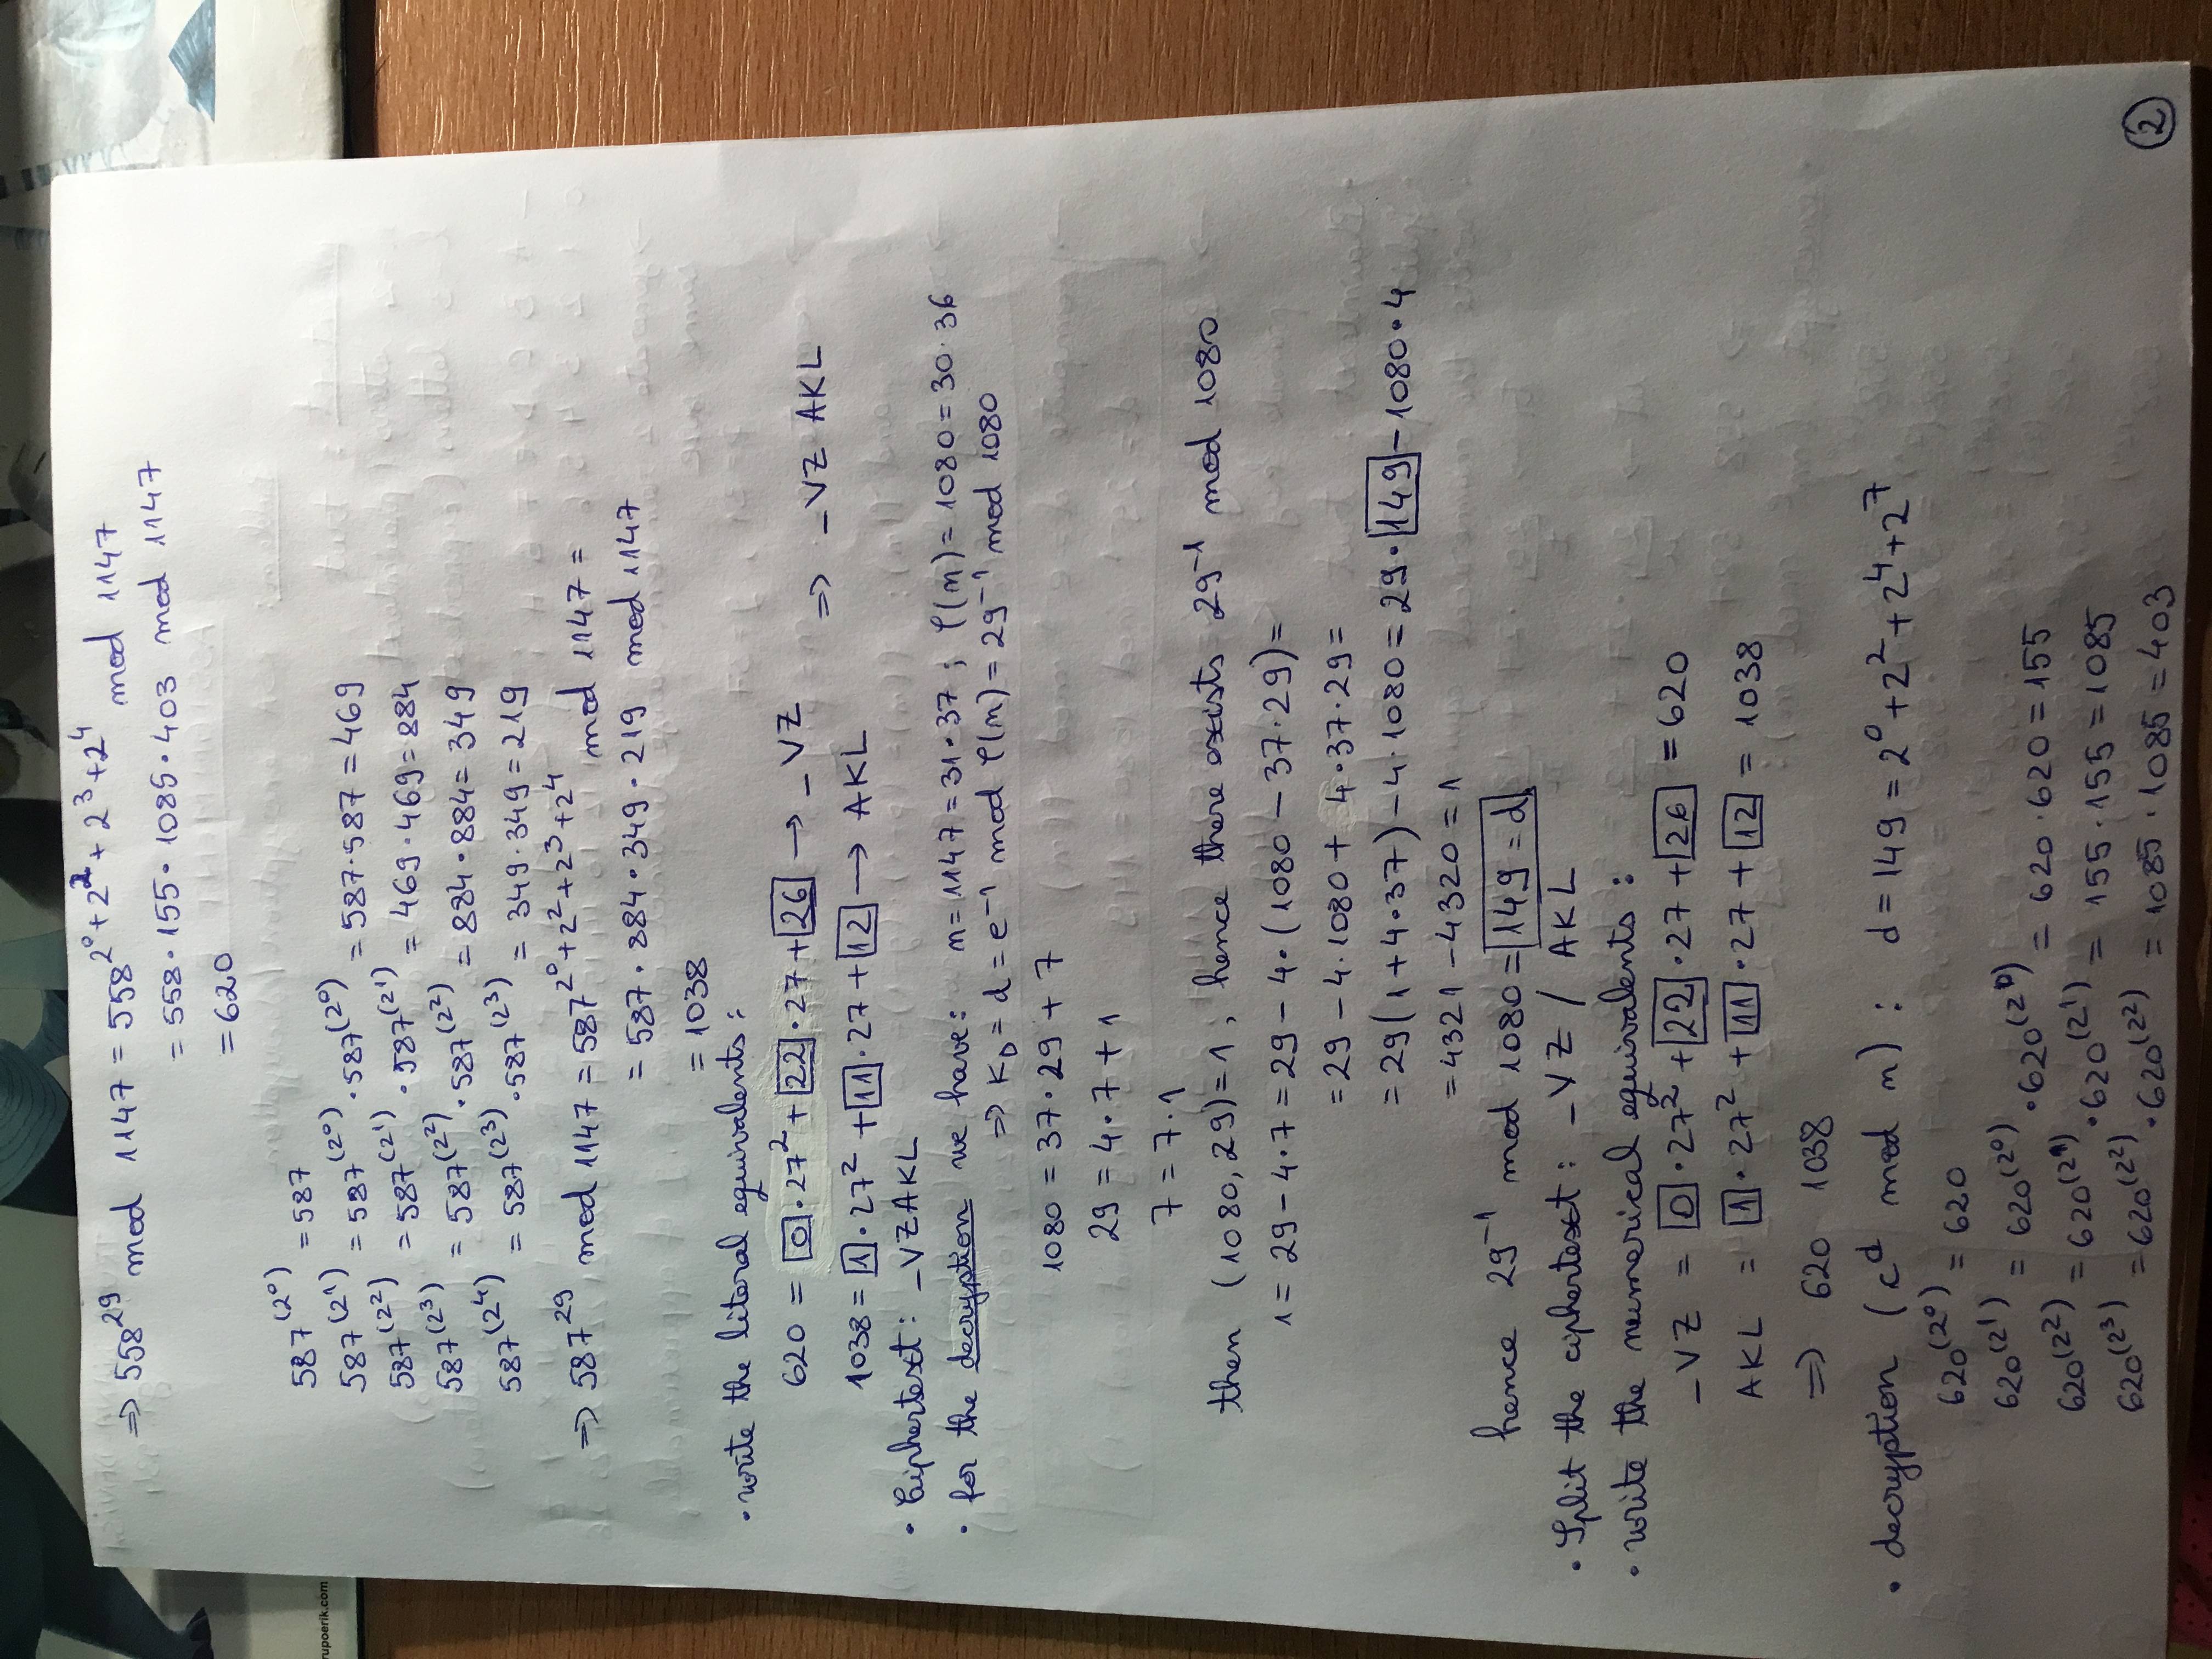 ⇒ 558^29 mod 1147 = 558^(2^0 + 2^2 + 2^3 + 2^4) mod 1147
= 558 · 155 · 1085 · 403 mod 1147
= 620
587^(2^0) = 587
rupoerik.com
587^(2^1) = 587^(2^0) · 587^(2^0) = 587 · 587 = 469
587^(2^2) = 587^(2^1) · 587^(2^1) = 469 · 469 = 884
587^(2^3) = 587^(2^2) · 587^(2^2) = 884 · 884 = 349
587^(2^4) = 587^(2^3) · 587^(2^3) = 349 · 349 = 219
⇒ 587^29 mod 1147 = 587^(2^0 + 2^2 + 2^3 + 2^4) mod 1147 =
= 587 · 884 · 349 · 219 mod 1147
= 1038
• write the literal equivalents:
620 = 0 · 27^2 + 22 · 27 + 26 → _VZ ⇒ _VZ AKL
1038 = 1 · 27^2 + 11 · 27 + 12 → AKL
• Ciphertext: _VZAKL
• for the decryption we have: n = 1147 = 31 · 37 ; φ(n) = 1080 = 30 · 36
⇒ K_D = d = e^-1 mod φ(n) = 29^-1 mod 1080
1080 = 37 · 29 + 7
29 = 4 · 7 + 1
7 = 7 · 1
then (1080, 29) = 1, hence there exists 29^-1 mod 1080
1 = 29 - 4 · 7 = 29 - 4 · (1080 - 37 · 29) =
= 29 - 4 · 1080 + 4 · 37 · 29 =
= 29(1 + 4 · 37) - 4 · 1080 = 29 · 149 - 1080 · 4
= 4321 - 4320 = 1
hence 29^-1 mod 1080 = 149 = d
• Split the ciphertext: _VZ / AKL
• write the numerical equivalents:
_VZ = 0 · 27^2 + 22 · 27 + 26 = 620
AKL = 1 · 27^2 + 11 · 27 + 12 = 1038
⇒ 620 1038
• decryption (c^d mod n): d = 149 = 2^0 + 2^2 + 2^4 + 2^7
620^(2^0) = 620
620^(2^1) = 620^(2^0) · 620^(2^0) = 620 · 620 = 155
620^(2^2) = 620^(2^1) · 620^(2^1) = 155 · 155 = 1085
620^(2^3) = 620^(2^2) · 620^(2^2) = 1085 · 1085 = 403
2